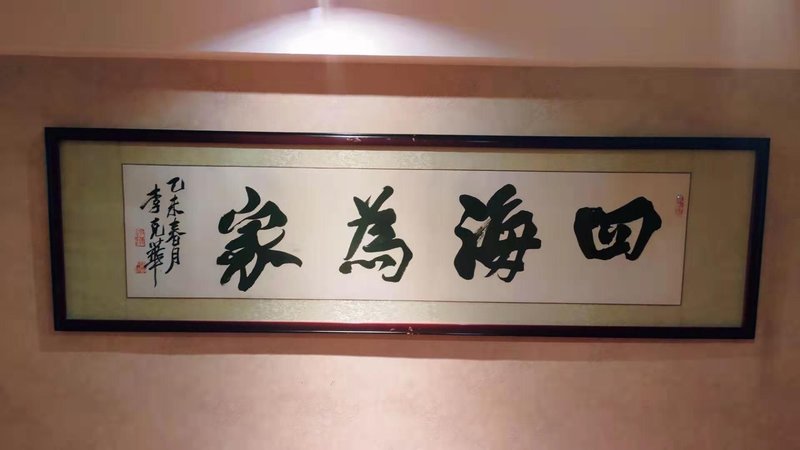 四海為家
乙未春月
李克華